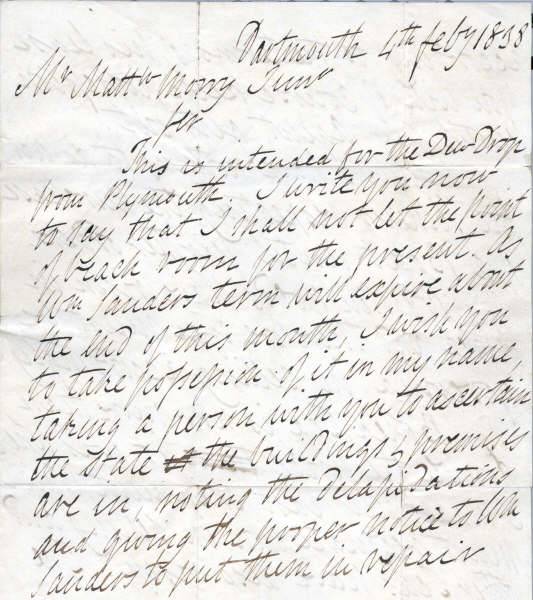 Dartmouth 4th feby 1838
Mr Mattw Morry Junr
Sir
This is intended for the Dew-Drop
from Plymouth. I write you now
to say that I shall not let the point
of beach room for the present. As
Wm Sanders term will expire about
the end of this month, I wish you
to take possession of it in my name,
taking a person with you to ascertain
the State the buildings & premises
are in, noting the delapidations
and giving the proper notice to Wm
Sanders to put them in repair